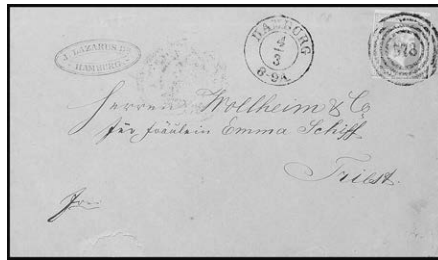 J. LAZARUS
HAMBURG
HAMBURG
4
3
6-9A.
Herren Wollheim & Co
für Fräulein Emma Schiff.
Triest.